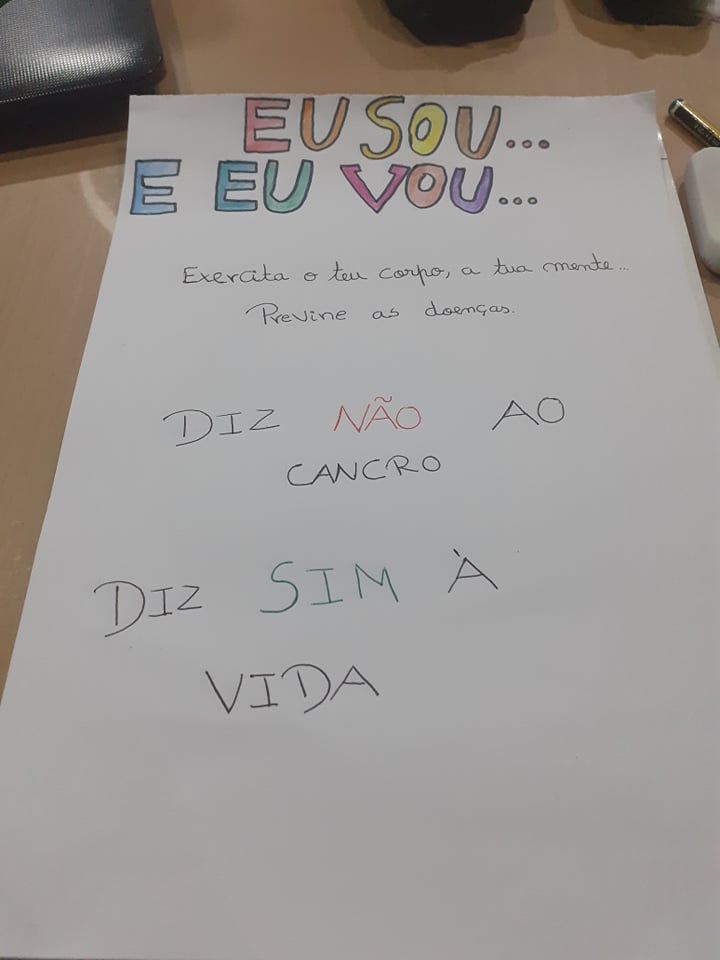 EU SOU...
E EU VOU...
Exercita o teu corpo, a tua mente...
Previne as doenças.
DIZ NÃO AO
CANCRO
DIZ SIM À
VIDA